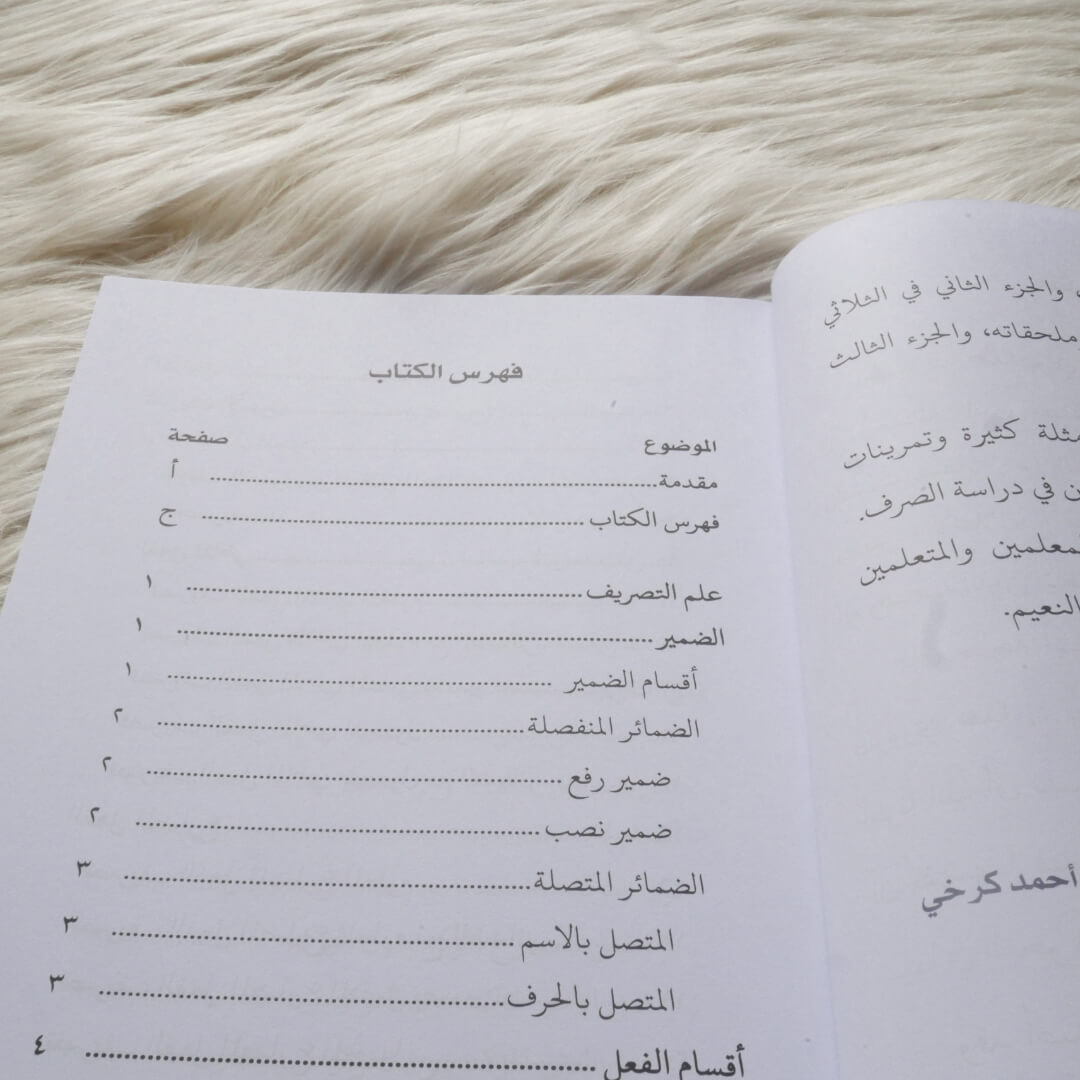 والجزء الثاني في الثلاثي
ملحقاته، والجزء الثالث
كثيرة وتمرينات
في دراسة الصرف.
والمتعلمين
النعيم.
أحمد كرخي
فهرس الكتاب
الموضوع صفحة
مقدمة أ
فهرس الكتاب ج
علم التصريف ١
الضمير ١
أقسام الضمير ١
الضمائر المنفصلة ٢
ضمير رفع ٢
ضمير نصب ٢
الضمائر المتصلة ٣
المتصل بالاسم ٣
المتصل بالحرف ٣
أقسام الفعل ٤